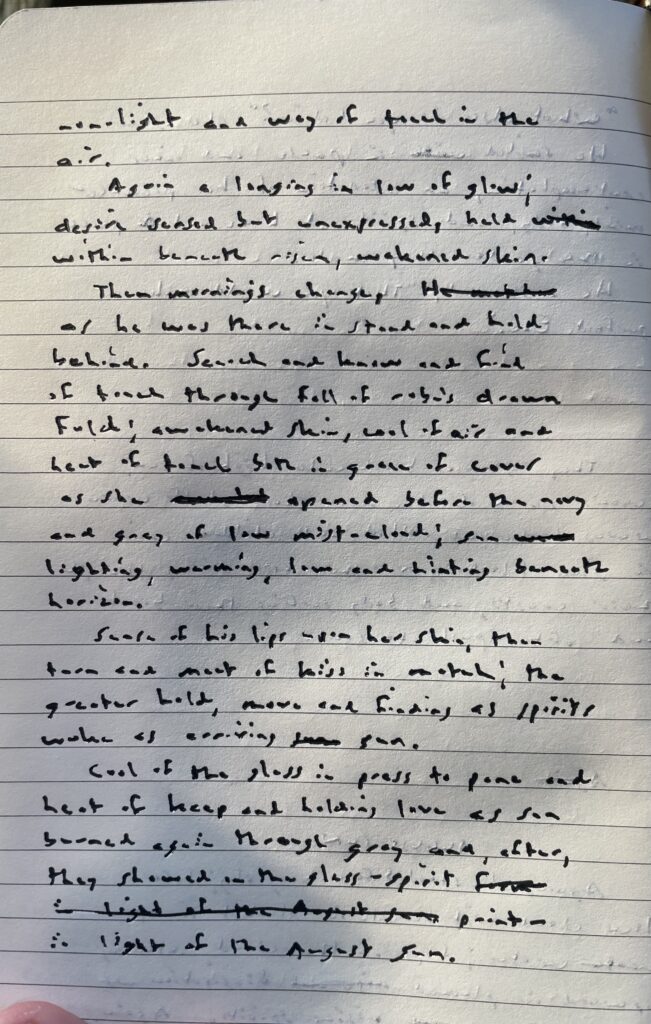 moonlight and way of touch in the
air.
Again a longing in low of glow;
desire sensed but unexpressed, held within
within beneath risen, awakened skin.
Then morning's change,
as he was there in stand and hold
behind. Search and know and find
of touch through fall of robe's drawn
fold; awakened skin, cool of air and
heat of touch both in grace of cover
as she opened before the navy
and grey of low mist-cloud; sun
lighting, warming, low and hinting beneath
horizon.
Sense of his lips upon her skin, then
turn and meet of kiss in match; the
greater hold, move and finding as spirits
woke as arriving sun.
Cool of the glass in press to pane and
heat of keep and holding love as sun
burned again through grey and, after,
they showed on the glass-spirit form
in light of the August sun print-
in light of the August sun.